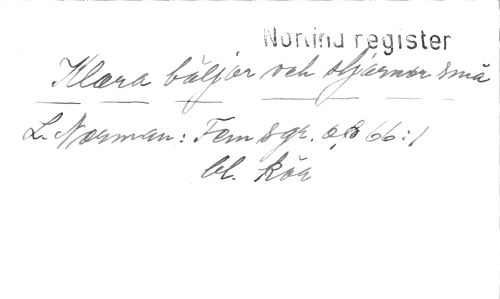 Nonind register
Klara böljor och stjärnor små
L. Norman: Fem sgr. op 66:1
bl. kör